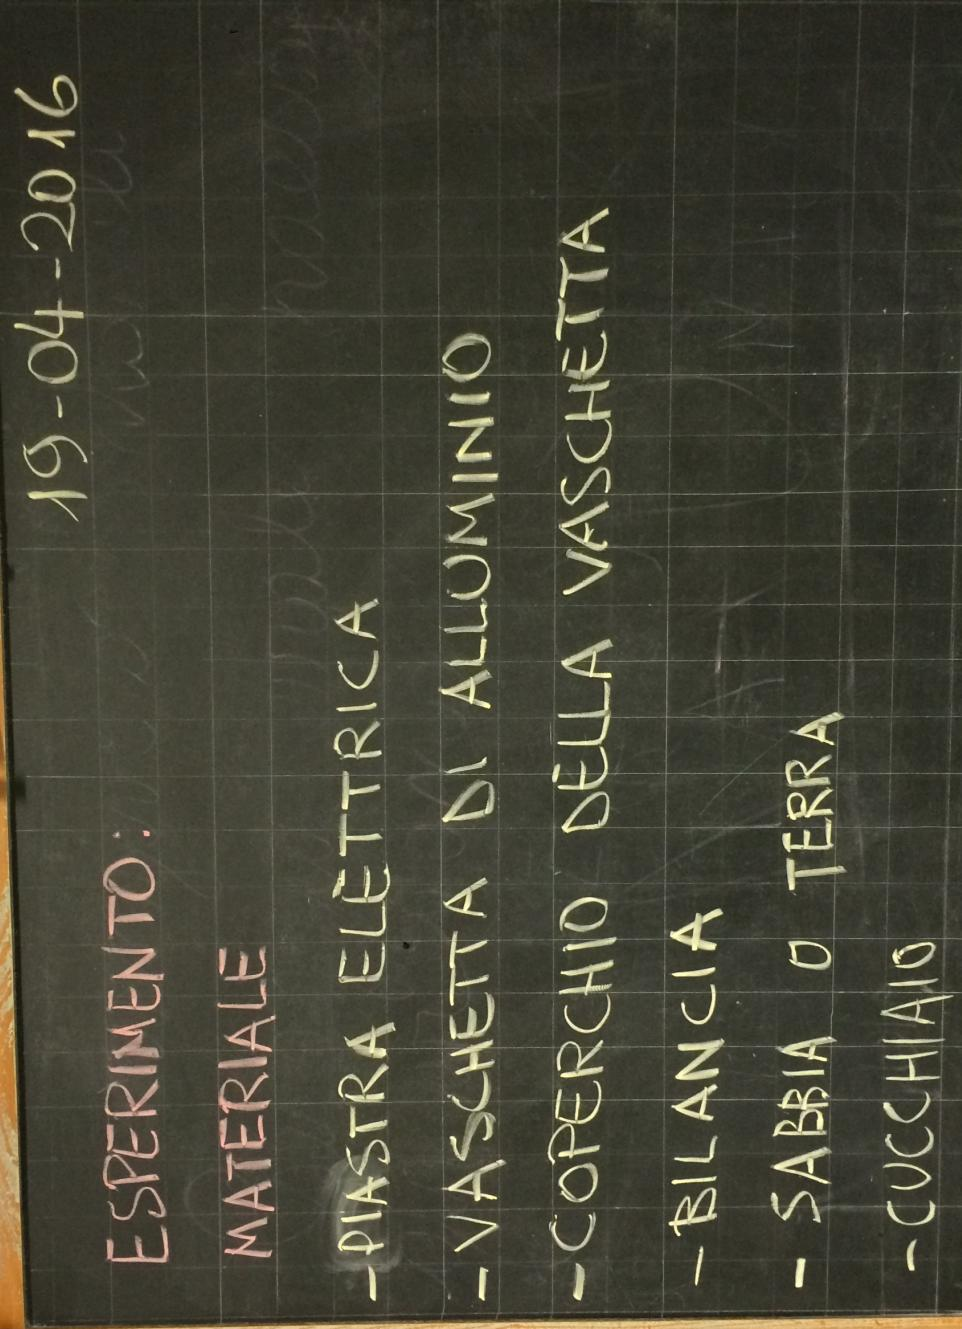 19-04-2016
ESPERIMENTO:
MATERIALE
-PIASTRA ELETTRICA
- VASCHETTA DI ALLUMINIO
- COPERCHIO DELLA VASCHETTA
- BILANCIA
- SABBIA O TERRA
- CUCCHIAIO